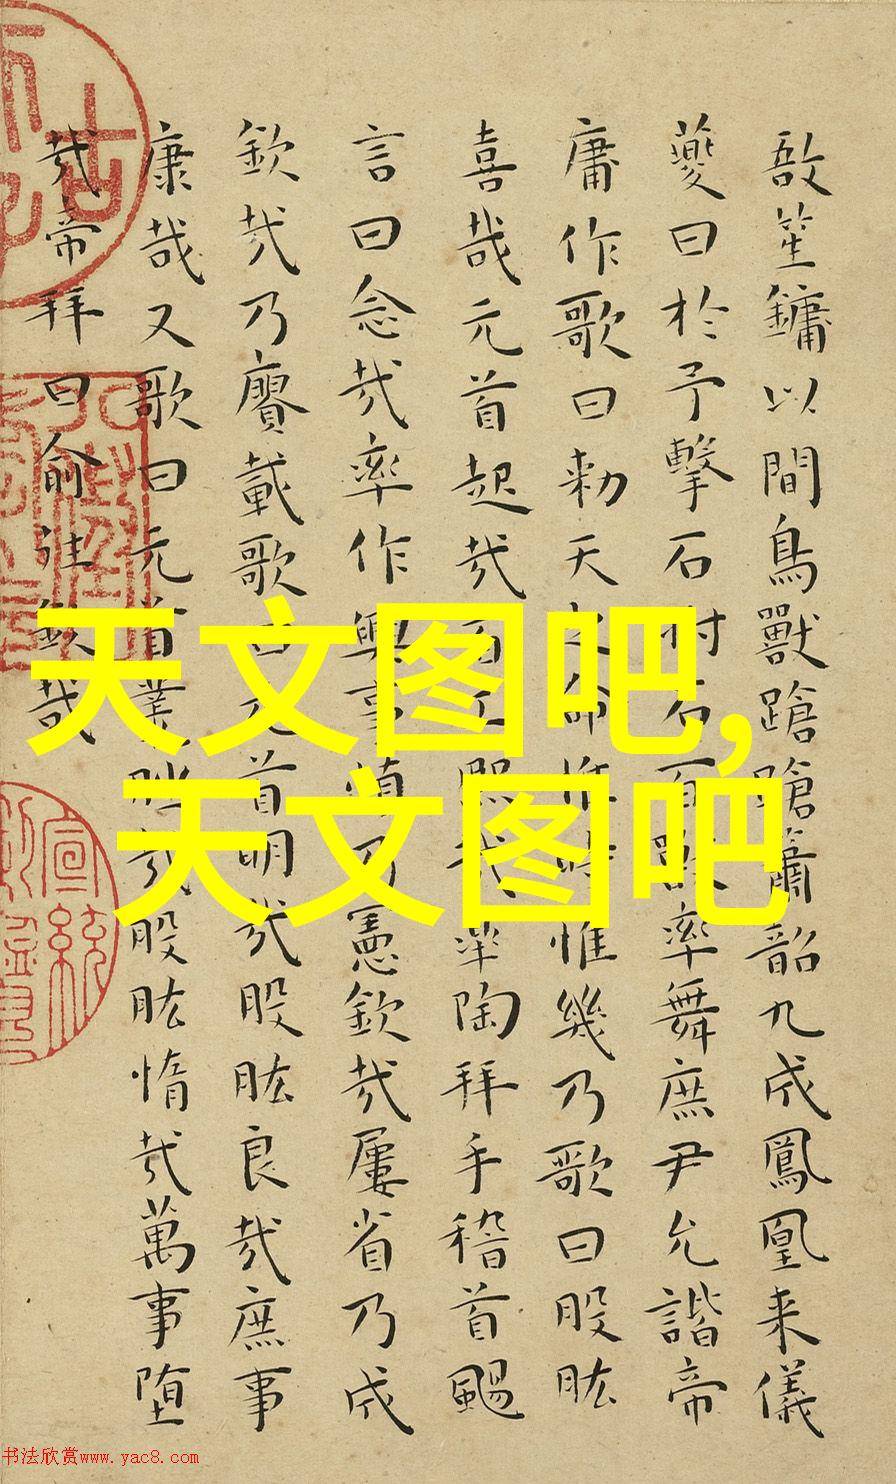 敔笙鏞以間鳥獸蹌蹌簫韶九成鳳凰来儀
夔曰於予擊石拊石百獸率舞庶尹允諧帝
庸作歌曰勑天之命惟時惟幾乃歌曰股肱
喜哉元首起哉百工熙哉皋陶拜手稽首颺
言曰念哉率作興事慎乃憲欽哉屢省乃成
欽哉乃賡載歌曰元首明哉股肱良哉庶事
康哉又歌曰元首叢脞哉股肱惰哉萬事堕
哉帝拜曰俞往欽哉
天文图吧,
天文图吧
宣統
书法欣赏www.yac8.com